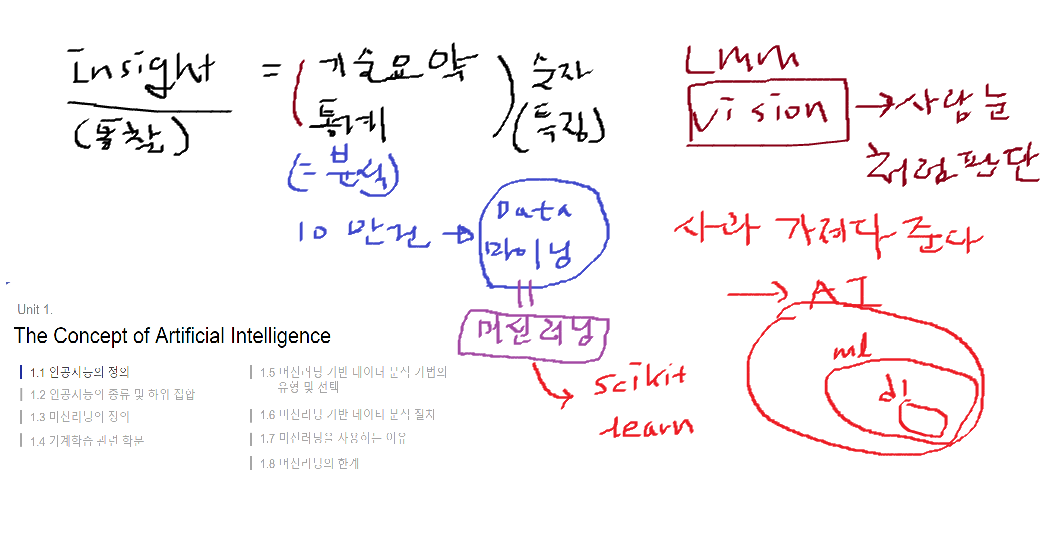 Insight = (기술요약 통계) 숫자
(통찰)
(특징)
(= 분석)
10 만건 → Data
마이닝
머신러닝
scikit
learn
LMM
Vision → 사람 눈
처럼 판단
사과 가려다 준다
→ AI
ml
dl
Unit 1.
The Concept of Artificial Intelligence
1.1 인공지능의 정의
1.2 인공지능의 종류 및 하위 집합
1.3 머신러닝의 정의
1.4 기계학습 관련 학문
1.5 머신러닝 기반 데이터 분석 기법의
유형 및 선택
1.6 머신러닝 기반 데이터 분석 절차
1.7 머신러닝을 사용하는 이유
1.8 머신러닝의 한계